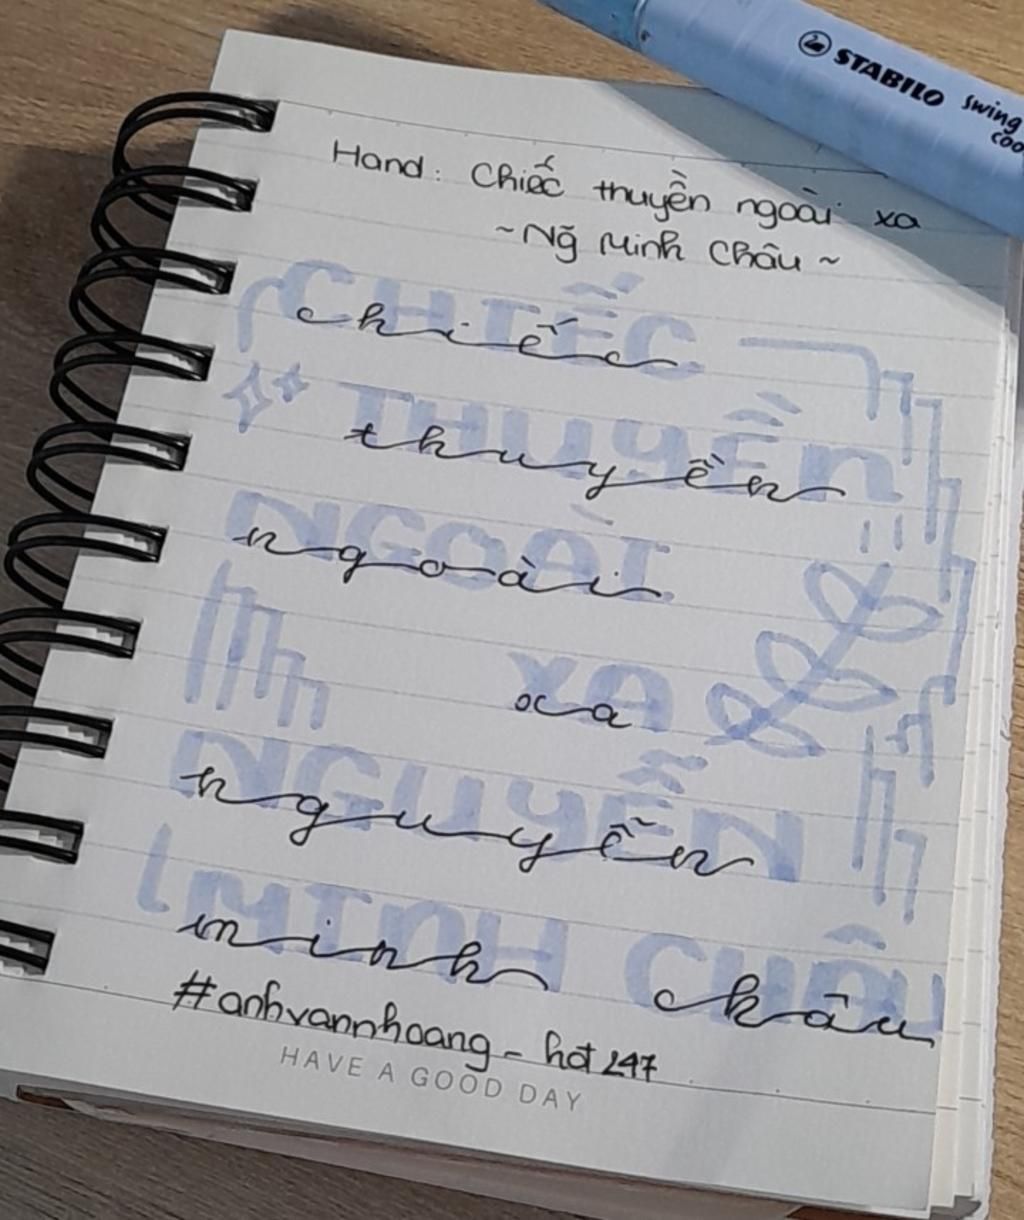 STABILO swing
coo
Hand: Chiếc thuyền ngoài xa
~Ng̃ Minh Châu~
CHIẾC
chiếc
THUYỀN
thuyền
NGOÀI
ngoài
XA
xa
NGUYỄN
nguyễn
MINH CHÂU
minh châu
#anhvannhoang - hot 247
HAVE A GOOD DAY